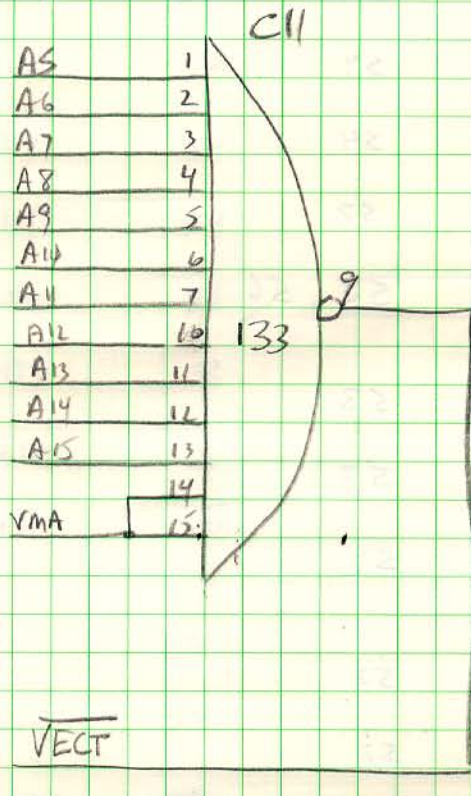 C11
A5 1
A6 2
A7 3
A8 4
A9 5
A10 6
A11 7
9
A12 10 133
A13 11
A14 12
A15 13
14
VMA 15
VECT